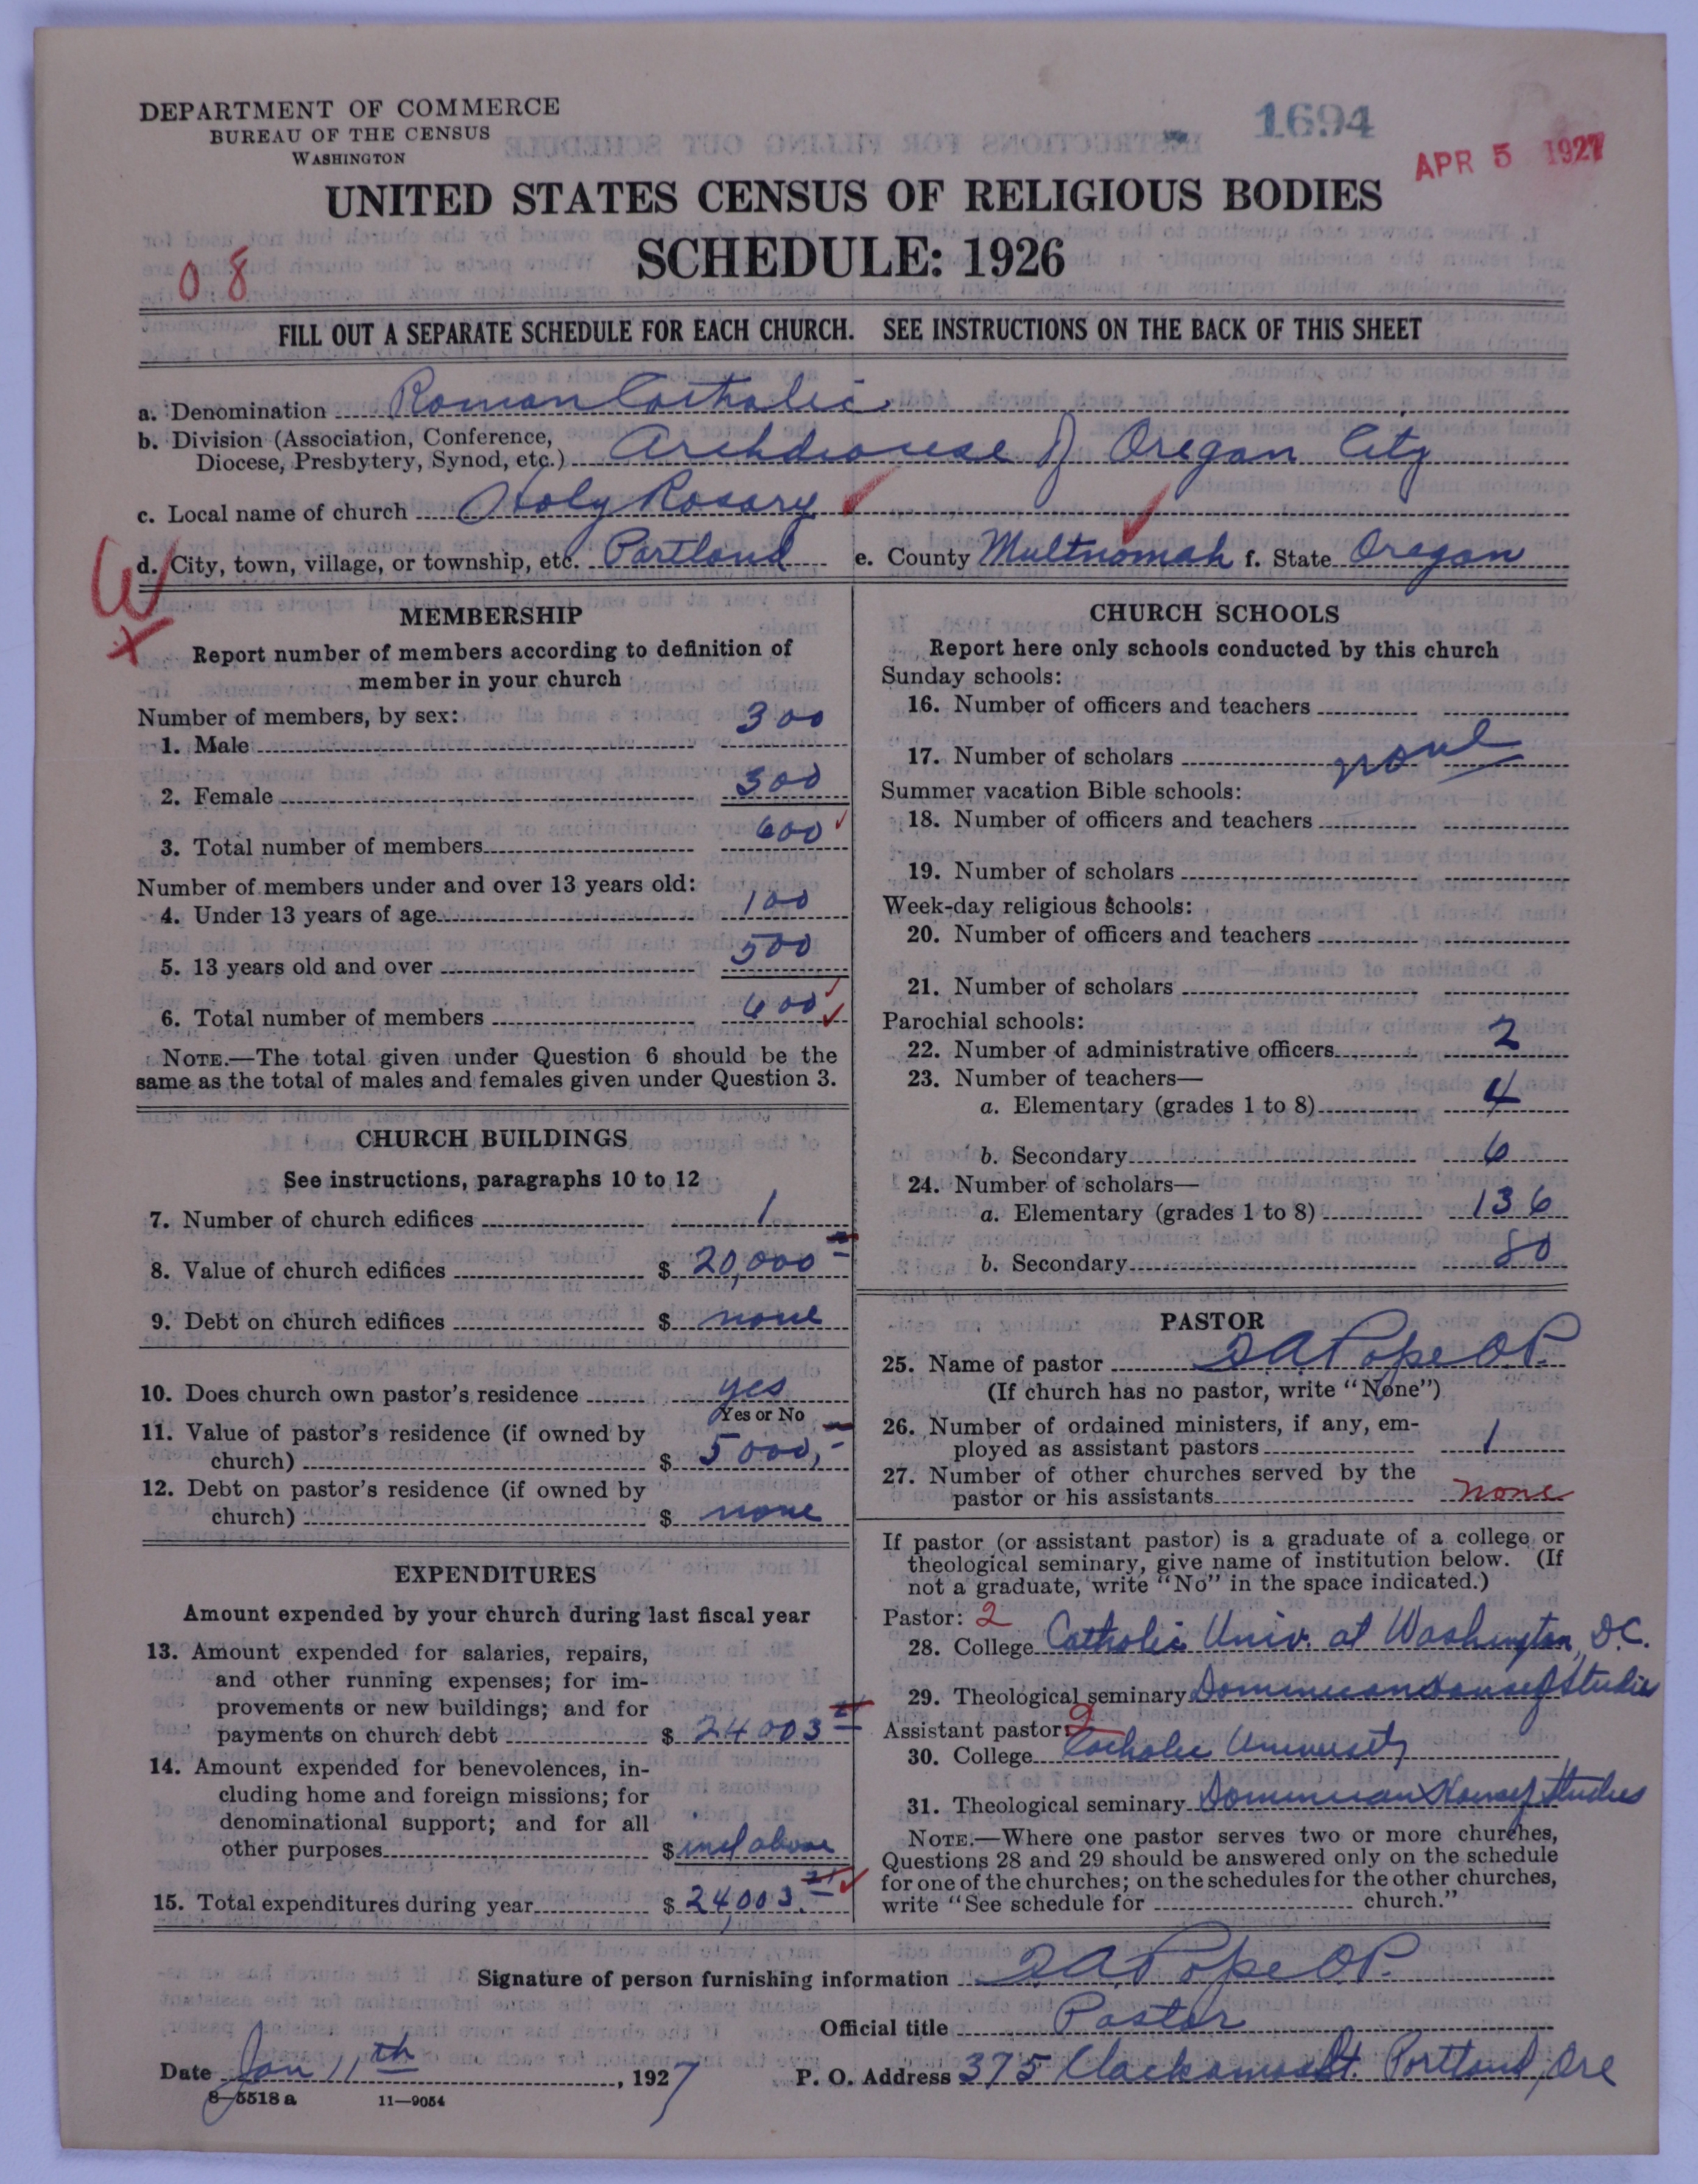 DEPARTMENT OF COMMERCE
BUREAU OF THE CENSUS
WASHINGTON
1694
APR 5 1927
UNITED STATES CENSUS OF RELIGIOUS BODIES
SCHEDULE: 1926
08
FILL OUT A SEPARATE SCHEDULE FOR EACH CHURCH. SEE INSTRUCTIONS ON THE BACK OF THIS SHEET
a. Denomination Roman Catholic
b. Division (Association, Conference,
Diocese, Presbytery, Synod, etc.) Archdiocese of Oregon City
c. Local name of church Holy Rosary
d. City, town, village, or township, etc. Portland e. County Multnomah f. State Oregon
W
X
MEMBERSHIP
Report number of members according to definition of
member in your church
Number of members, by sex:
1. Male 300
2. Female 300
3. Total number of members 600
Number of members under and over 13 years old:
4. Under 13 years of age 100
5. 13 years old and over 500
6. Total number of members 600
NOTE.—The total given under Question 6 should be the
same as the total of males and females given under Question 3.
CHURCH BUILDINGS
See instructions, paragraphs 10 to 12
7. Number of church edifices 1
8. Value of church edifices $ 20,000
9. Debt on church edifices $ none
10. Does church own pastor's residence yes
Yes or No
11. Value of pastor's residence (if owned by
church) $ 5000,-
12. Debt on pastor's residence (if owned by
church) $ none
EXPENDITURES
Amount expended by your church during last fiscal year
13. Amount expended for salaries, repairs,
and other running expenses; for im-
provements or new buildings; and for
payments on church debt $ 24003
14. Amount expended for benevolences, in-
cluding home and foreign missions; for
denominational support; and for all
other purposes $ incl above
15. Total expenditures during year $ 24,003.
CHURCH SCHOOLS
Report here only schools conducted by this church
Sunday schools:
16. Number of officers and teachers
17. Number of scholars none
Summer vacation Bible schools:
18. Number of officers and teachers
19. Number of scholars
Week-day religious schools:
20. Number of officers and teachers
21. Number of scholars
Parochial schools:
22. Number of administrative officers 2
23. Number of teachers—
a. Elementary (grades 1 to 8) 4
b. Secondary 6
24. Number of scholars—
a. Elementary (grades 1 to 8) 136
b. Secondary 80
PASTOR
25. Name of pastor Pope O.P.
(If church has no pastor, write "None")
26. Number of ordained ministers, if any, em-
ployed as assistant pastors 1
27. Number of other churches served by the
pastor or his assistants none
If pastor (or assistant pastor) is a graduate of a college or
theological seminary, give name of institution below. (If
not a graduate, write "No" in the space indicated.)
Pastor: 2
28. College Catholic Univ. at Washington, D.C.
29. Theological seminary Dominican House of Studies
Assistant pastor: 2
30. College Catholic University
31. Theological seminary Dominican House of Studies
NOTE.—Where one pastor serves two or more churches,
Questions 28 and 29 should be answered only on the schedule
for one of the churches; on the schedules for the other churches,
write "See schedule for church."
Signature of person furnishing information Pope O.P.
Official title Pastor
Date Jan 11th, 1927 P. O. Address 375 Clackamas St. Portland, Ore
8—5518 a 11—9054